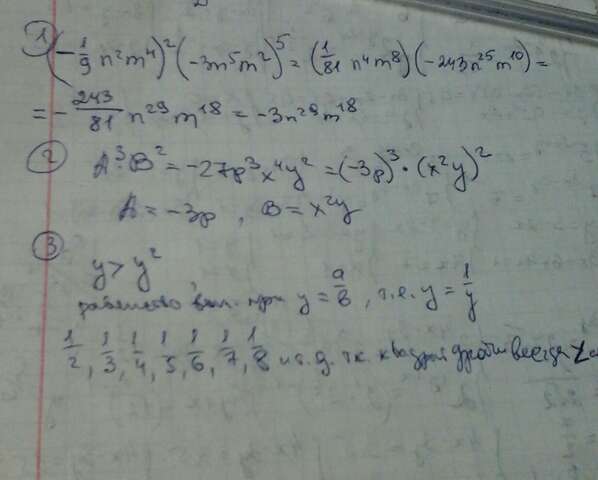 1 (-1/9 n²m⁴)² (-3n⁵m²)⁵ = (1/81 n⁴m⁸)(-243n²⁵m¹⁰) =
= -243/81 n²⁹m¹⁸ = -3n²⁹m¹⁸
2 A³·B² = -27p³x⁴y² = (-3p)³ · (x²y)²
A = -3p , B = x²y
3
y > y²
равенство вып. при y = a/b , т.е. y = 1/y
1/2, 1/3, 1/4, 1/5, 1/6, 1/7, 1/8 и т.д. т.к. квадрат дроби всегда <